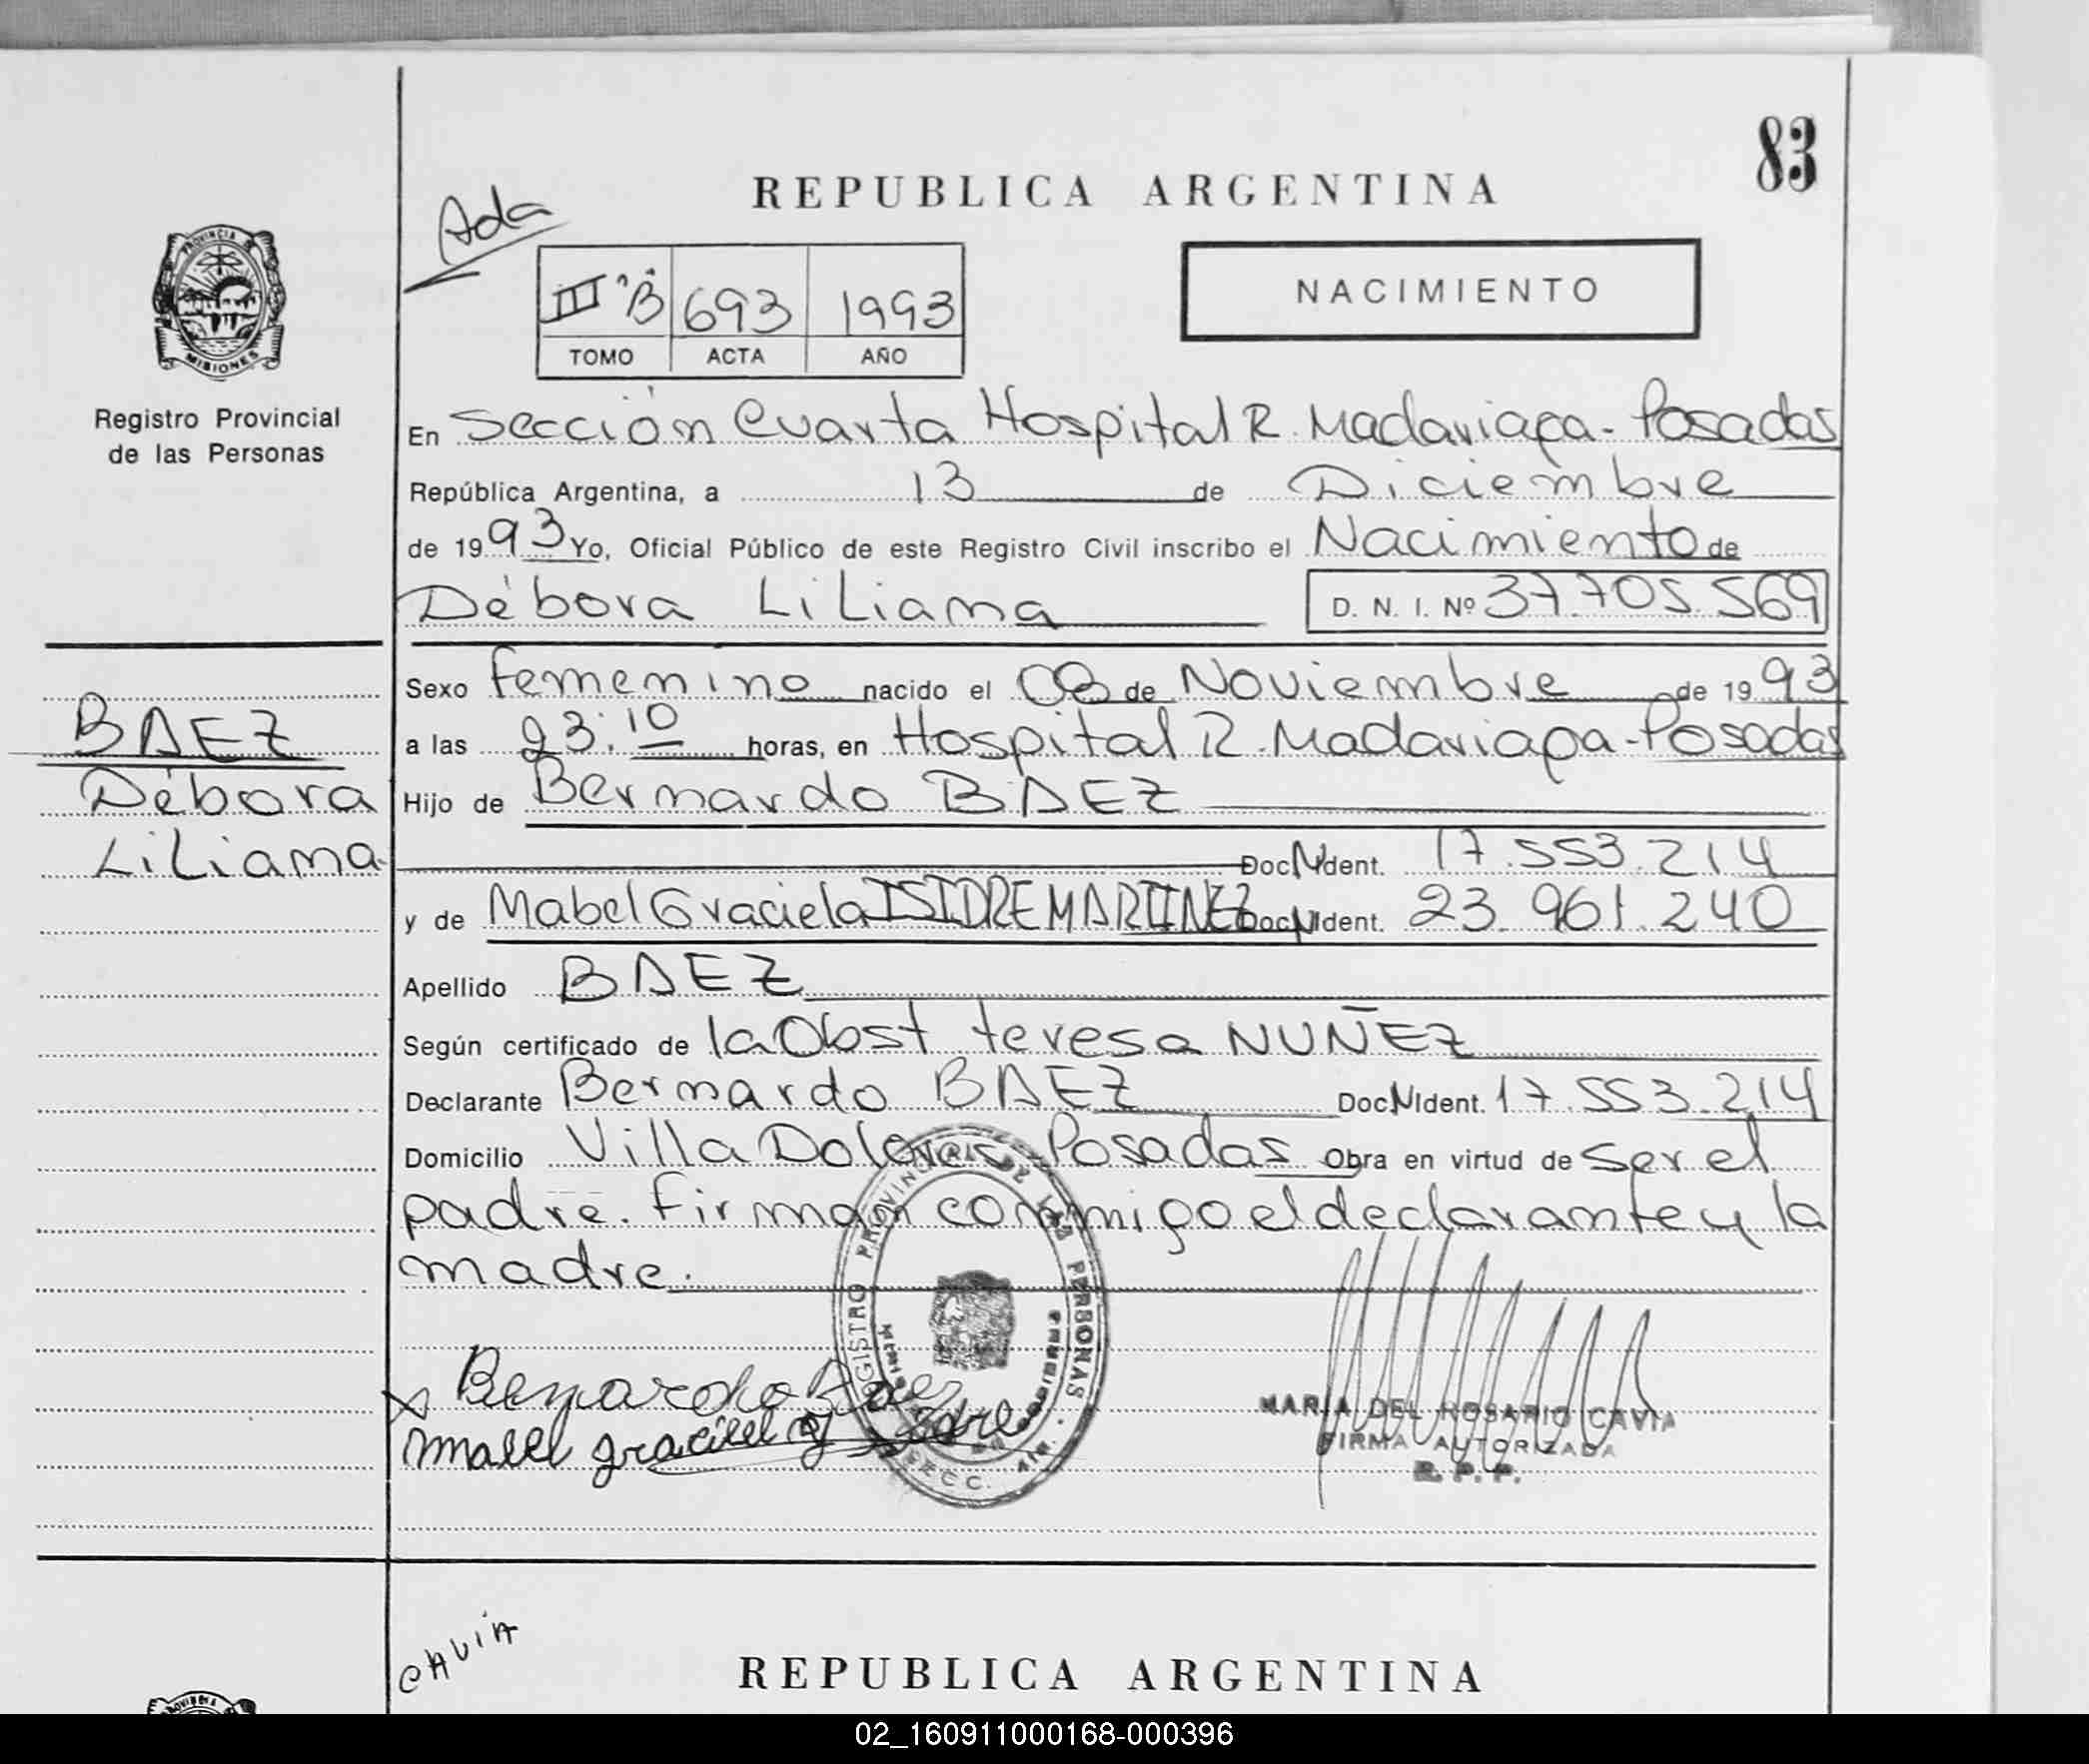 83
REPUBLICA ARGENTINA
Ada
III "B" 693 1993
TOMO ACTA AÑO
NACIMIENTO
PROVINCIA DE MISIONES
Registro Provincial
de las Personas
En Sección Cuarta Hospital R. Madariaga - Posadas
República Argentina, a 13 de Diciembre
de 1993 Yo, Oficial Público de este Registro Civil inscribo el Nacimiento de
Débora Liliana D. N. I. Nº 37.705.569
BAEZ
Débora
Liliana
Sexo femenino nacido el 08 de Noviembre de 1993
a las 23:10 horas, en Hospital R. Madariaga - Posadas
Hijo de Bernardo BAEZ
Doc N Ident. 17.553.214
y de Mabel Graciela ISIDRE MARTINEZ Doc N Ident. 23.961.240
Apellido BAEZ
Según certificado de la Obst teresa NUÑEZ
Declarante Bernardo BAEZ Doc N Ident. 17.553.214
Domicilio Villa Dolores Posadas Obra en virtud de ser el
padre. firman conmigo el declarante y la
madre.
REGISTRO PROVINCIAL DE LAS PERSONAS
Bernardo Baez
Mabel graciela isidre
MARIA DEL ROSARIO CAVIA
FIRMA AUTORIZADA
R. P. P.
CAVIA
REPUBLICA ARGENTINA
02_160911000168-000396